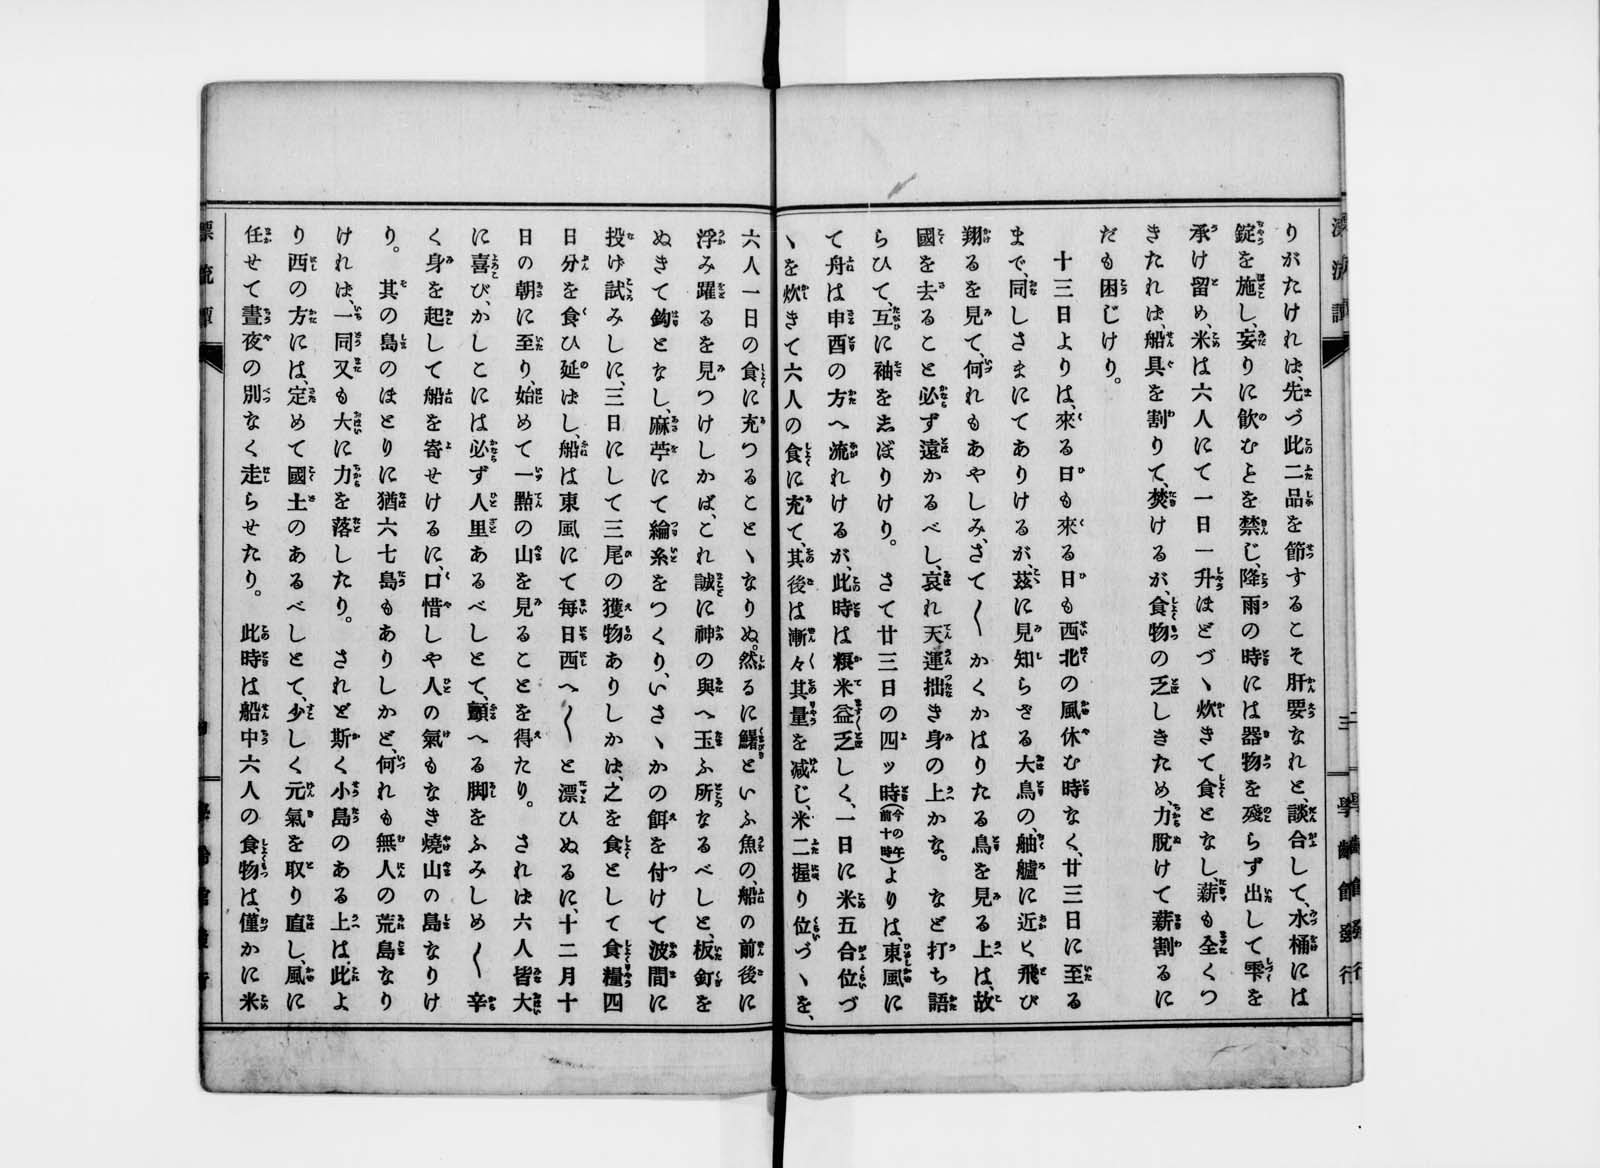 りがたければ先づ此二品を節するこそ肝要なれと、談合して、水桶には
錠を施し、妄りに飮むとを禁じ、降雨の時には器物を殘らず出して雫を
承け留め、米は六人にて一日一升ほどづゝ炊きて食となし、薪も全くつ
きたれば、船具を割りて、焚けるが、食物の乏しきため、力脱けて薪割るに
だも困じけり。
十三日よりは、來る日も來る日も西北の風休む時なく、廿三日に至る
まで、同しさまにてありけるが、茲に見知らざる大鳥の、舳艫に近く飛び
翔るを見て、何れもあやしみ、さて〳〵かくかはりたる鳥を見る上は、故
國を去ること必ず遠かるべし、哀れ天運拙き身の上かな。など打ち語
らひて、互に袖を志ぼりけり。さて廿三日の四ッ時(今の午前十時)よりは、東風に
て舟は申酉の方へ流れけるが、此時は粮米益乏しく、一日に米五合位づ
ゝを炊きて六人の食に充て、其後は漸々其量を减じ、米二握り位づゝを、
六人一日の食に充つることゝなりぬ。然るに鱰といふ魚の、船の前後に
浮み躍るを見つけしかば、これ誠に神の與へ玉ふ所なるべしと、板釘を
ぬきて鈎となし、麻苧にて綸糸をつくり、いさゝかの餌を付けて波間に
投け試みしに、三日にして三尾の獲物ありしかは、之を食として食糧四
日分を食ひ延はし、船は東風にて毎日西へ〳〵と漂ひぬるに、十二月十
日の朝に至り、始めて一點の山を見ることを得たり。されは六人皆大
に喜び、かしこには必ず人里あるべしとて、顫へる脚をふみしめ〳〵辛
く身を起して船を寄せけるに、口惜しや人の氣もなき燒山の島なりけ
り。其の島のほとりに猶六七島もありしかど、何れも無人の荒島なり
けれは、一同又も大に力を落したり。されど斯く小島のある上は、此よ
り西の方には、定めて國土のあるべしとて、少しく元氣を取り直し、風に
任せて晝夜の別なく走らせたり。此時は船中六人の食物は、僅かに米
漂流譚
三
學齡館發行